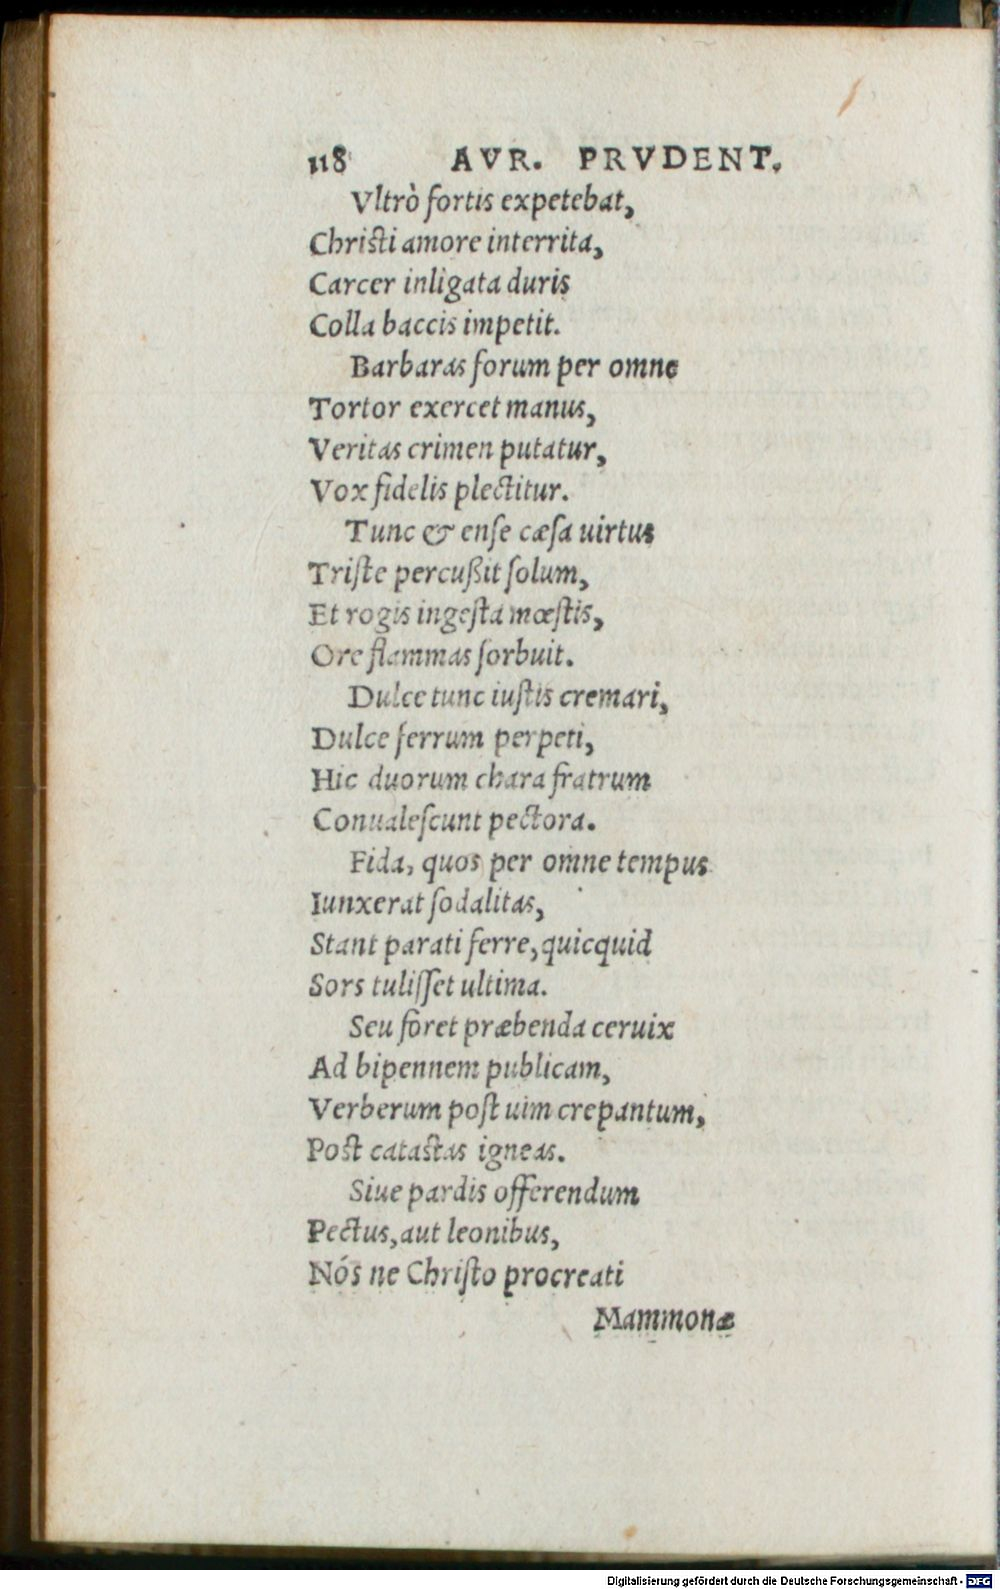 118 AVR. PRVDENT.
Vltrò fortis expetebat,
Christi amore interrita,
Carcer inligata duris
Colla baccis impetit.
Barbaras forum per omne
Tortor exercet manus,
Veritas crimen putatur,
Vox fidelis plectitur.
Tunc & ense cæsa uirtus
Triste percußit solum,
Et rogis ingesta mœstis,
Ore flammas sorbuit.
Dulce tunc iustis cremari,
Dulce ferrum perpeti,
Hic duorum chara fratrum
Conualescunt pectora.
Fida, quos per omne tempus
Iunxerat sodalitas,
Stant parati ferre, quicquid
Sors tulisset ultima.
Seu foret præbenda ceruix
Ad bipennem publicam,
Verberum post uim crepantum,
Post catastas igneas.
Siue pardis offerendum
Pectus, aut leonibus,
Nós ne Christo procreati
Mammonæ
Digitalisierung gefördert durch die Deutsche Forschungsgemeinschaft - DFG